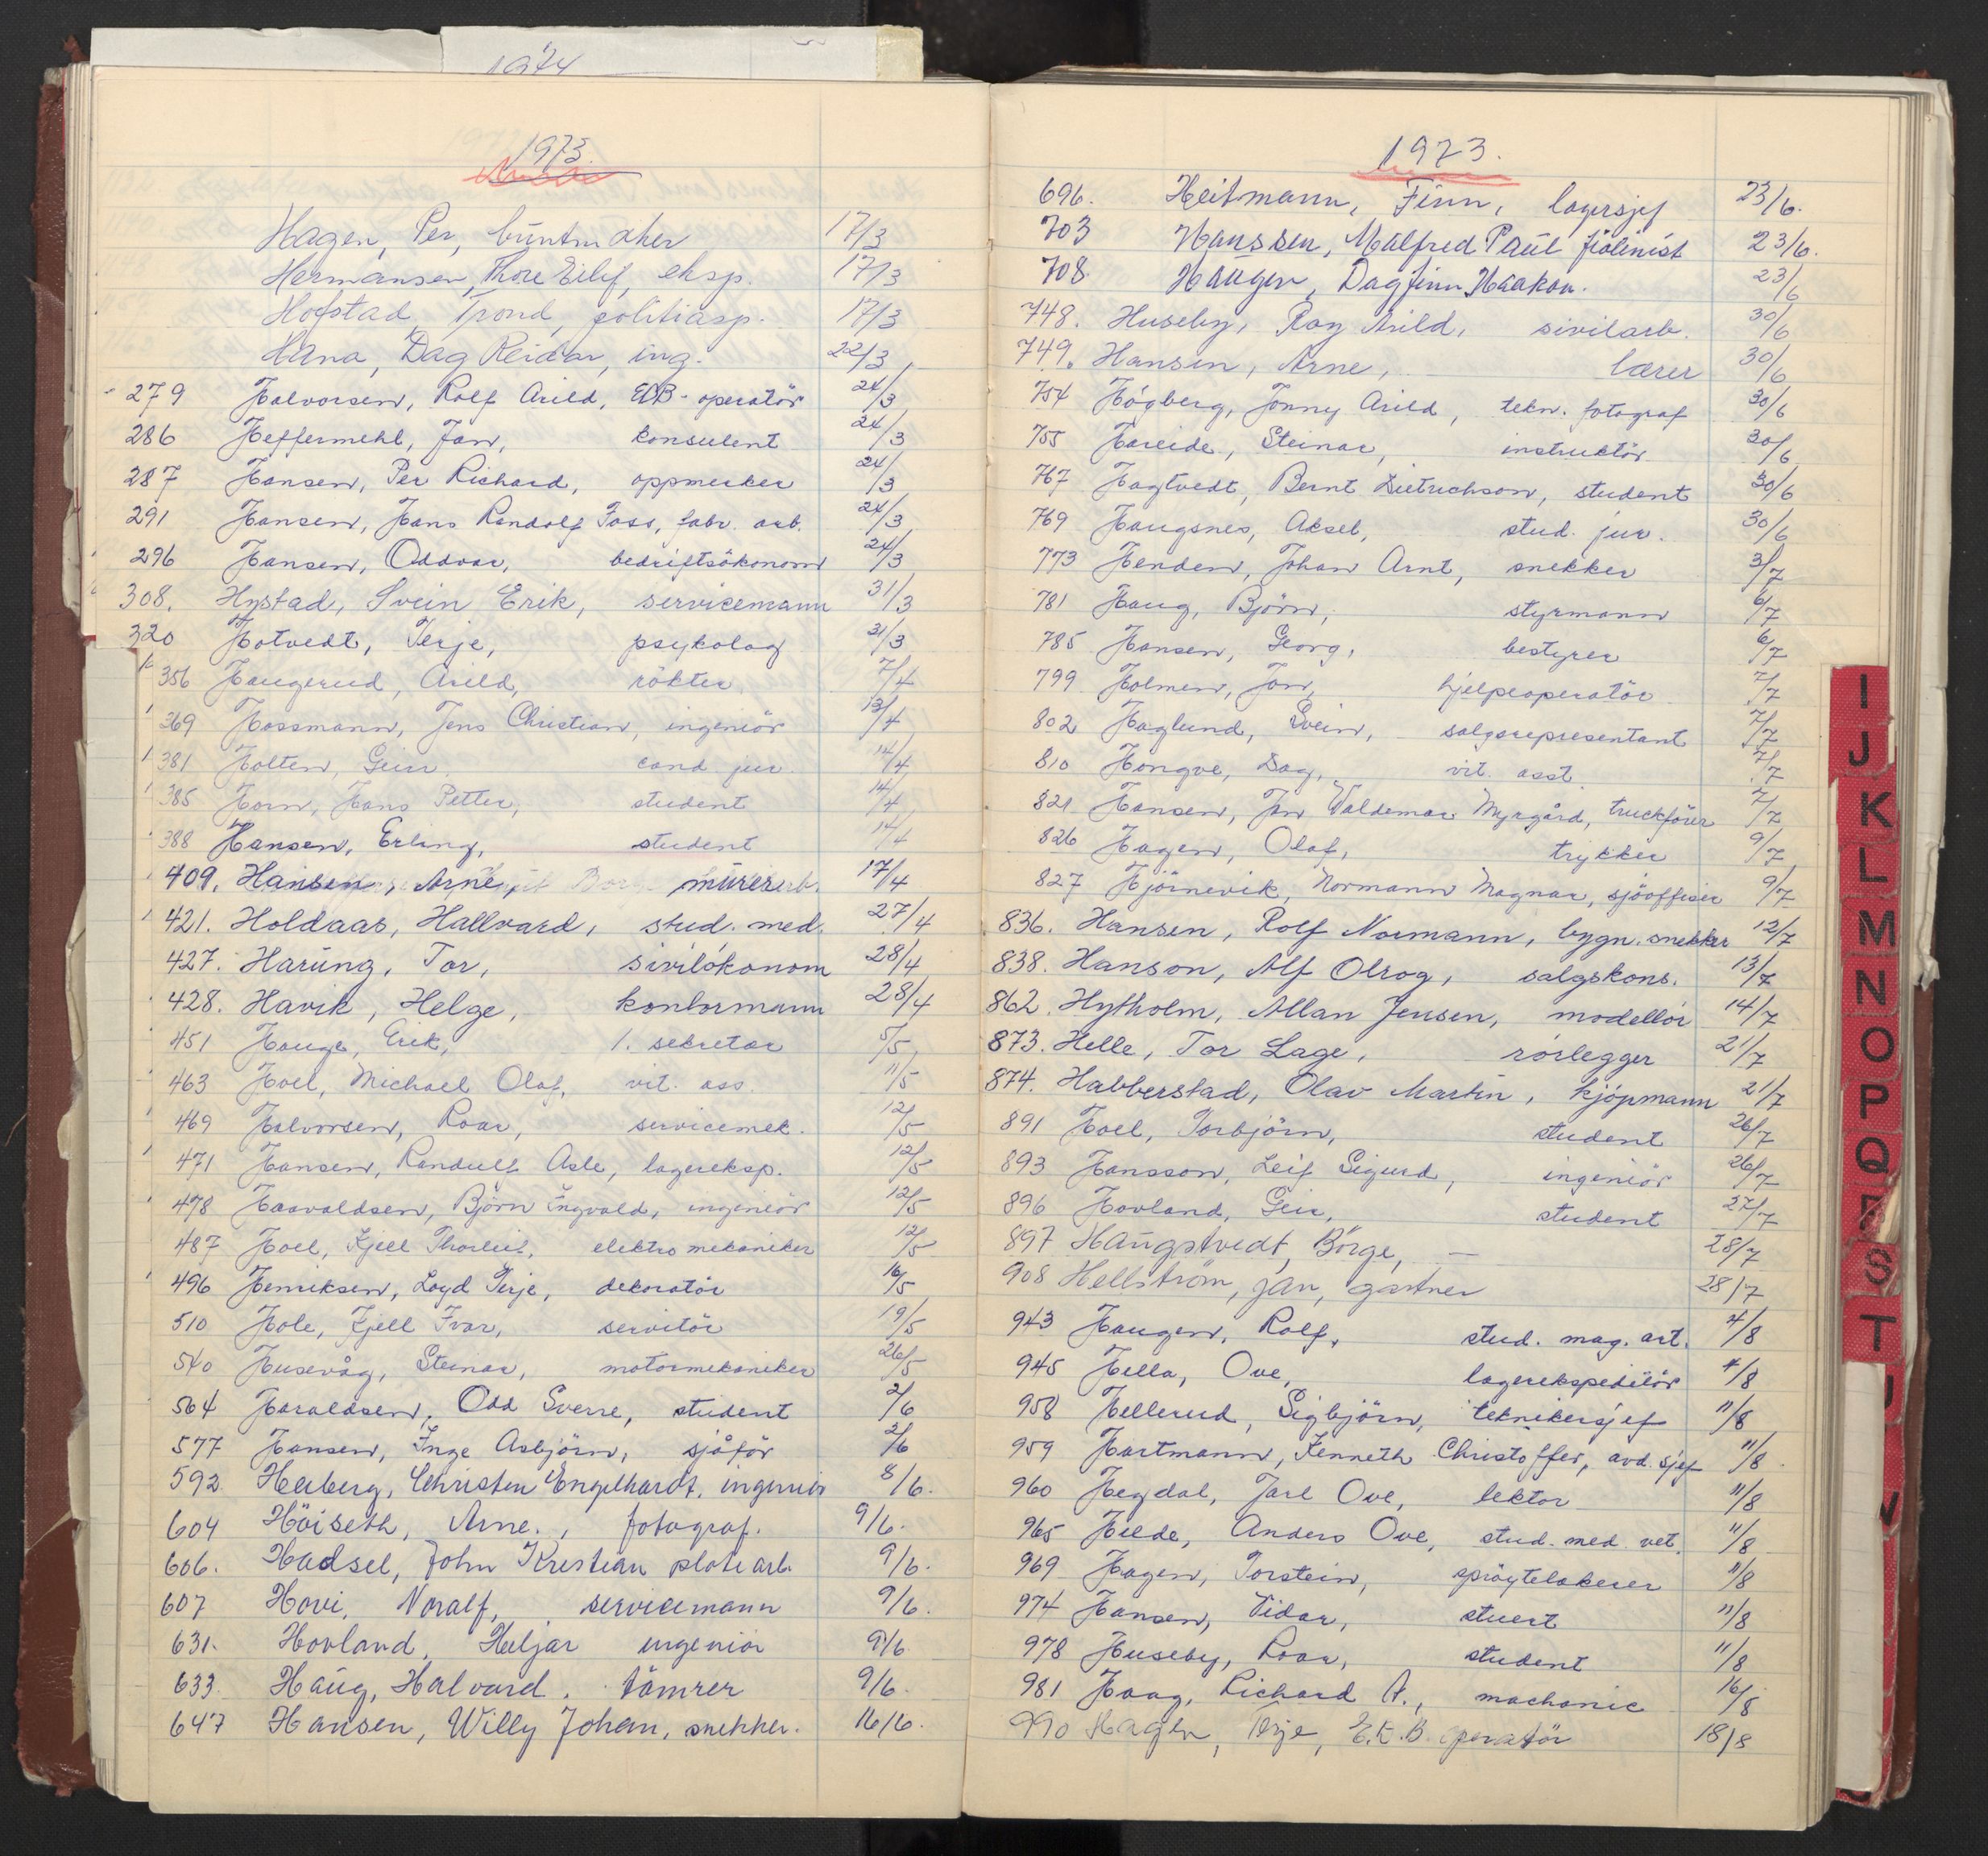 1974
1973.
Hagen, Per, buntmaker 17/3
Hermansen, Thore Eilif, eksp. 17/3
Hofstad, Trond, politiasp. 17/3
Hana, Dag Reidar, ing. 22/3
279 Halvorsen, Rolf Arild, EDB-operatör 24/3
286 Heffermehl, Jan, konsulent 24/3
287 Hansen, Per Richard, oppmerker 24/3
291 Hansen, Hans Randolf Foss, fabr. arb. 24/3
296 Hansen, Oddvar, bedriftsökonom 24/3
308. Hystad, Svein Erik, servicemann 31/3
320 Hotvedt, Terje, psykolog 31/3
356 Haugerud, Arild, rökter 7/4
369 Hassmann, Jens Christian, ingeniör 13/4
381 Holten, Geir cand. jur. 14/4
385 Horn, Hans Petter, student 14/4
388 Hansen, Erling, student 14/4
409. Hansen, Arne murerarb. 17/4
421. Holdaas, Hallvard, stud. med. 27/4
427. Harung, Tor, sivilökonom 28/4
428. Havik, Helge, kontormann 28/4
451 Hauge, Erik, 1. sekretær 5/5
463 Hoel, Michael Olaf, vit. ass. 11/5
469 Halvorsen, Roar, servicemek. 12/5
471 Hansen, Randulf Asle, lagereksp. 12/5
478 Haavaldsen, Björn Ingvald, ingeniör 12/5
487 Hoel, Kjell Thorleif, elektromekaniker 12/5
496 Henriksen, Loyd Terje, dekoratör 16/5
510 Hole, Kjell Ivar, servitör 19/5
540 Husevåg, Steinar, motormekaniker 26/5
564 Haraldsen, Odd Sverre, student 2/6
577 Hansen, Inge Asbjörn, sjåför 2/6
592 Heiberg, Christen Engelhardt, ingeniör 8/6.
604 Höiseth, Arne., fotograf. 9/6.
606. Hadsel, John Kristian platearb. 9/6.
607 Hovi, Noralf, servicemann 9/6.
631. Hovland, Heljar ingeniör 9/6
633. Haug, Halvard, tömrer 9/6.
647 Hansen, Willy Johan, snekker. 16/6.
1973.
696. Heitmann, Finn, lagersjef 23/6.
703 Hanssen, Malfred Paul fiolinist 23/6.
708 Haugen, Dagfinn Haakon. 23/6
748. Huseby, Roy Arild, sivilarb. 30/6
749. Hansen, Arne, lærer 30/6
754 Högberg, Jonny Arild, tekn. fotograf 30/6
755 Hareide, Steinar, instruktör 30/6
767 Hagtvedt, Bernt Dietrichson, student 30/6
769 Haugsnes, Aksel, stud. jur. 30/6
773 Henden, Johan Arnt, snekker 3/7
781 Haug, Björn, styrmann 6/7
785 Hansen, Georg, bestyrer 6/7
799 Holmen, Jan, hjelpeoperatör 7/7
802 Haglund, Svein, salgsrepresentant 7/7
810 Hongve, Dag, vit. asst. 7/7
821 Hansen, Jan Valdemar Myrgård, truckförer 7/7
826 Hagen, Olaf, trykker 9/7
827 Hjörnevik, Normann Magnar, sjöoffiser 9/7
836. Hansen, Rolf Normann, bygn. snekker 12/7
838. Hanson, Alf Olrog, salgskons. 13/7
862. Hytholm, Allan Jensen, modellör 14/7
873. Helle, Tor Lage, rörlegger 21/7
874. Habberstad, Olav Martin, kjöpmann 21/7
891 Hoel, Torbjörn, student 26/7
893 Hansson, Leif Sigurd, ingeniör 26/7
896 Hovland, Geir, student 27/7
897 Haugstvedt, Börge, — 28/7
908 Hellström, Jan, gartner 28/7
943 Haugen, Rolf, stud. mag. art. 4/8
945 Hella, Ove, lagerekspeditör 4/8
958 Hellerud, Sigbjörn, teknikersjef 11/8
959 Hartmann, Kenneth Christoffer, avd. sjef 11/8
960 Hegdal, Jarl Ove, lektor 11/8
965 Hilde, Anders Ove, stud. med. vet. 11/8
969 Hagen, Torstein, spröytelakerer 11/8
974 Hansen, Vidar, stuert 11/8
978 Huseby, Roar, student 11/8
981 Haag, Richard A., machanic 16/8
990 Hagen, Terje, E.D.B. operatör 18/8
I
J
K
L
M
N
O
P
Q
R
S
T